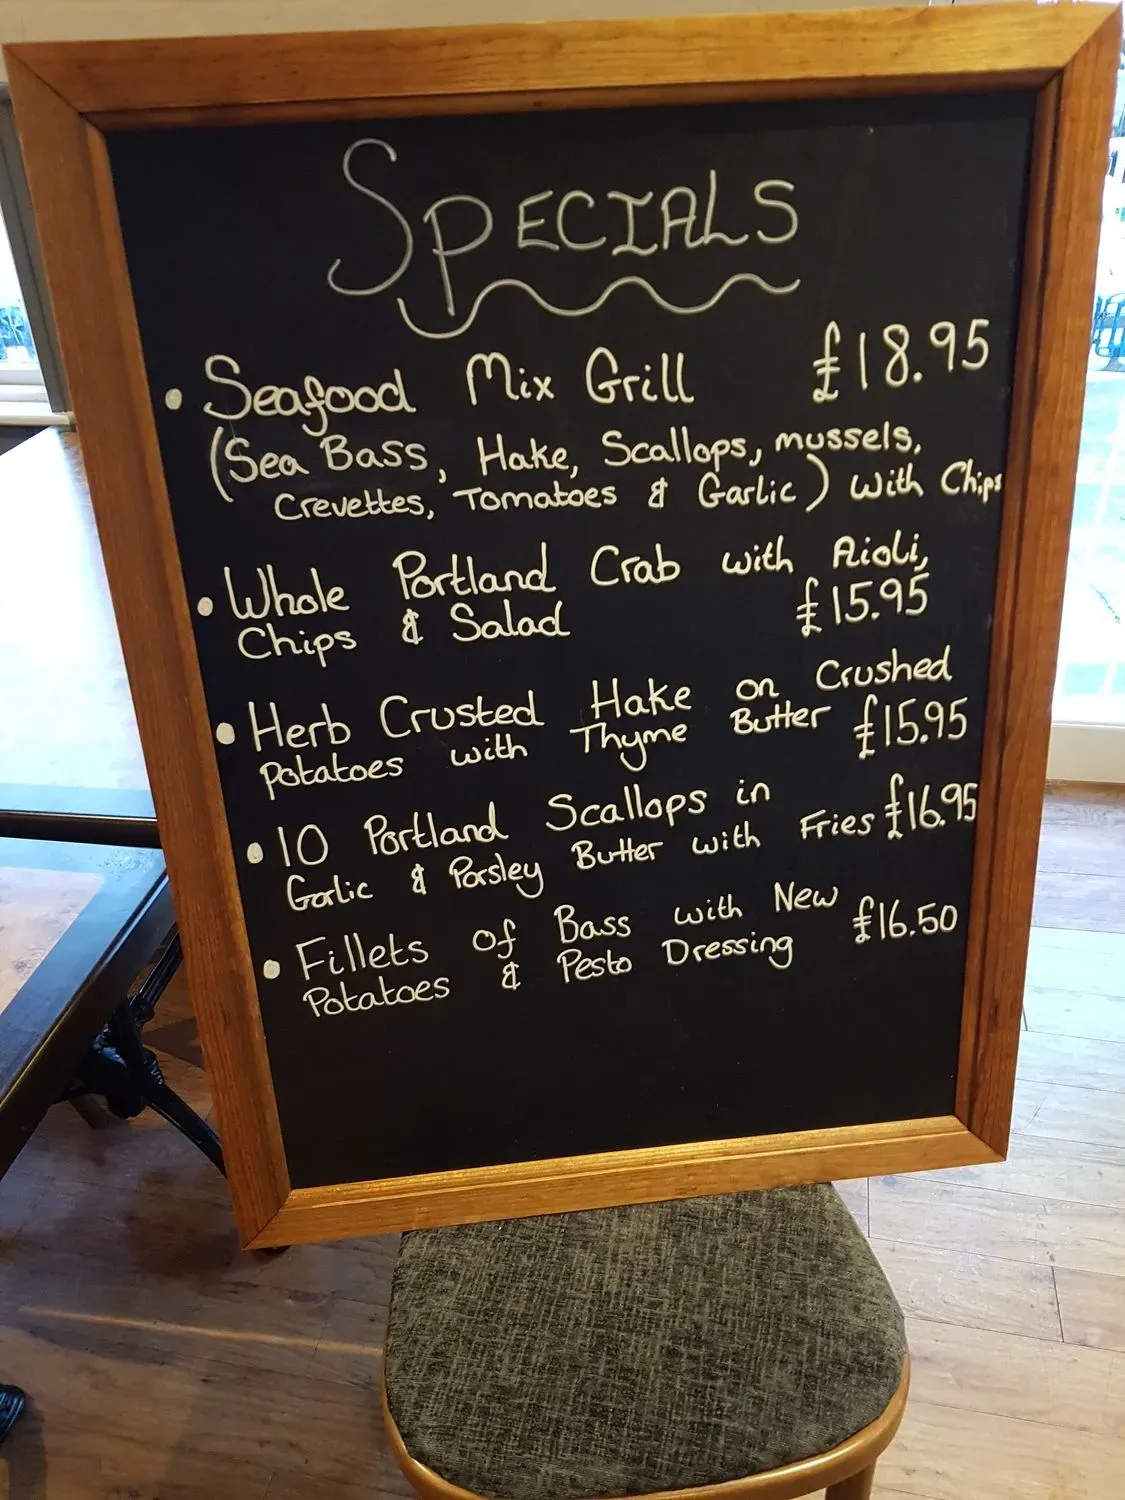 SPECIALS
• Seafood Mix Grill £18.95
(Sea Bass, Hake, Scallops, mussels,
Crevettes, Tomatoes & Garlic) with Chips
• Whole Portland Crab with Aioli,
Chips & Salad £15.95
• Herb Crusted Hake on Crushed
Potatoes with Thyme Butter £15.95
• 10 Portland Scallops in
Garlic & Parsley Butter with Fries £16.95
• Fillets of Bass with New
Potatoes & Pesto Dressing £16.50